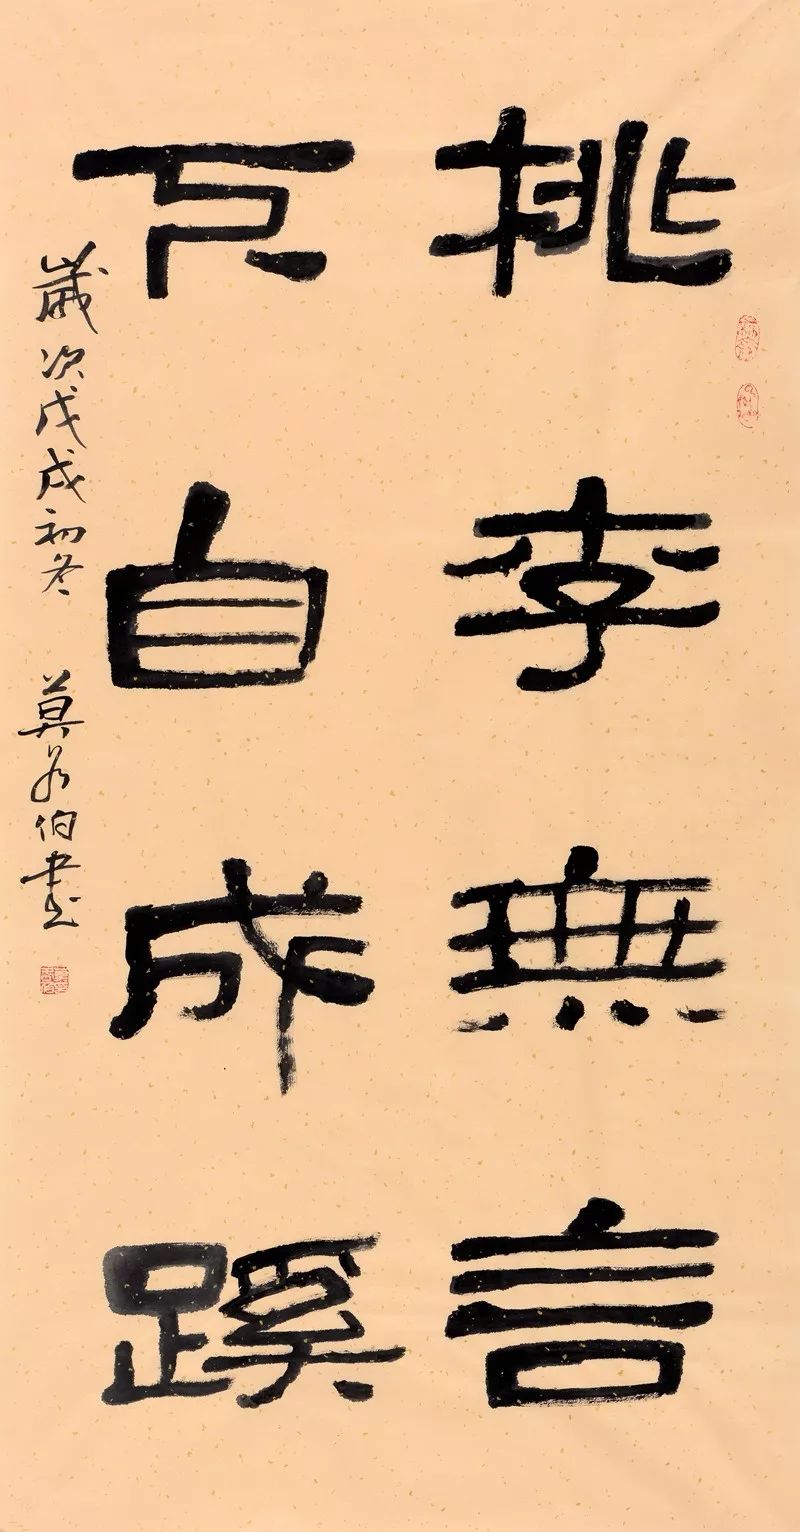 桃李無言
下自成蹊
歲次戊戌初冬 莫各伯書